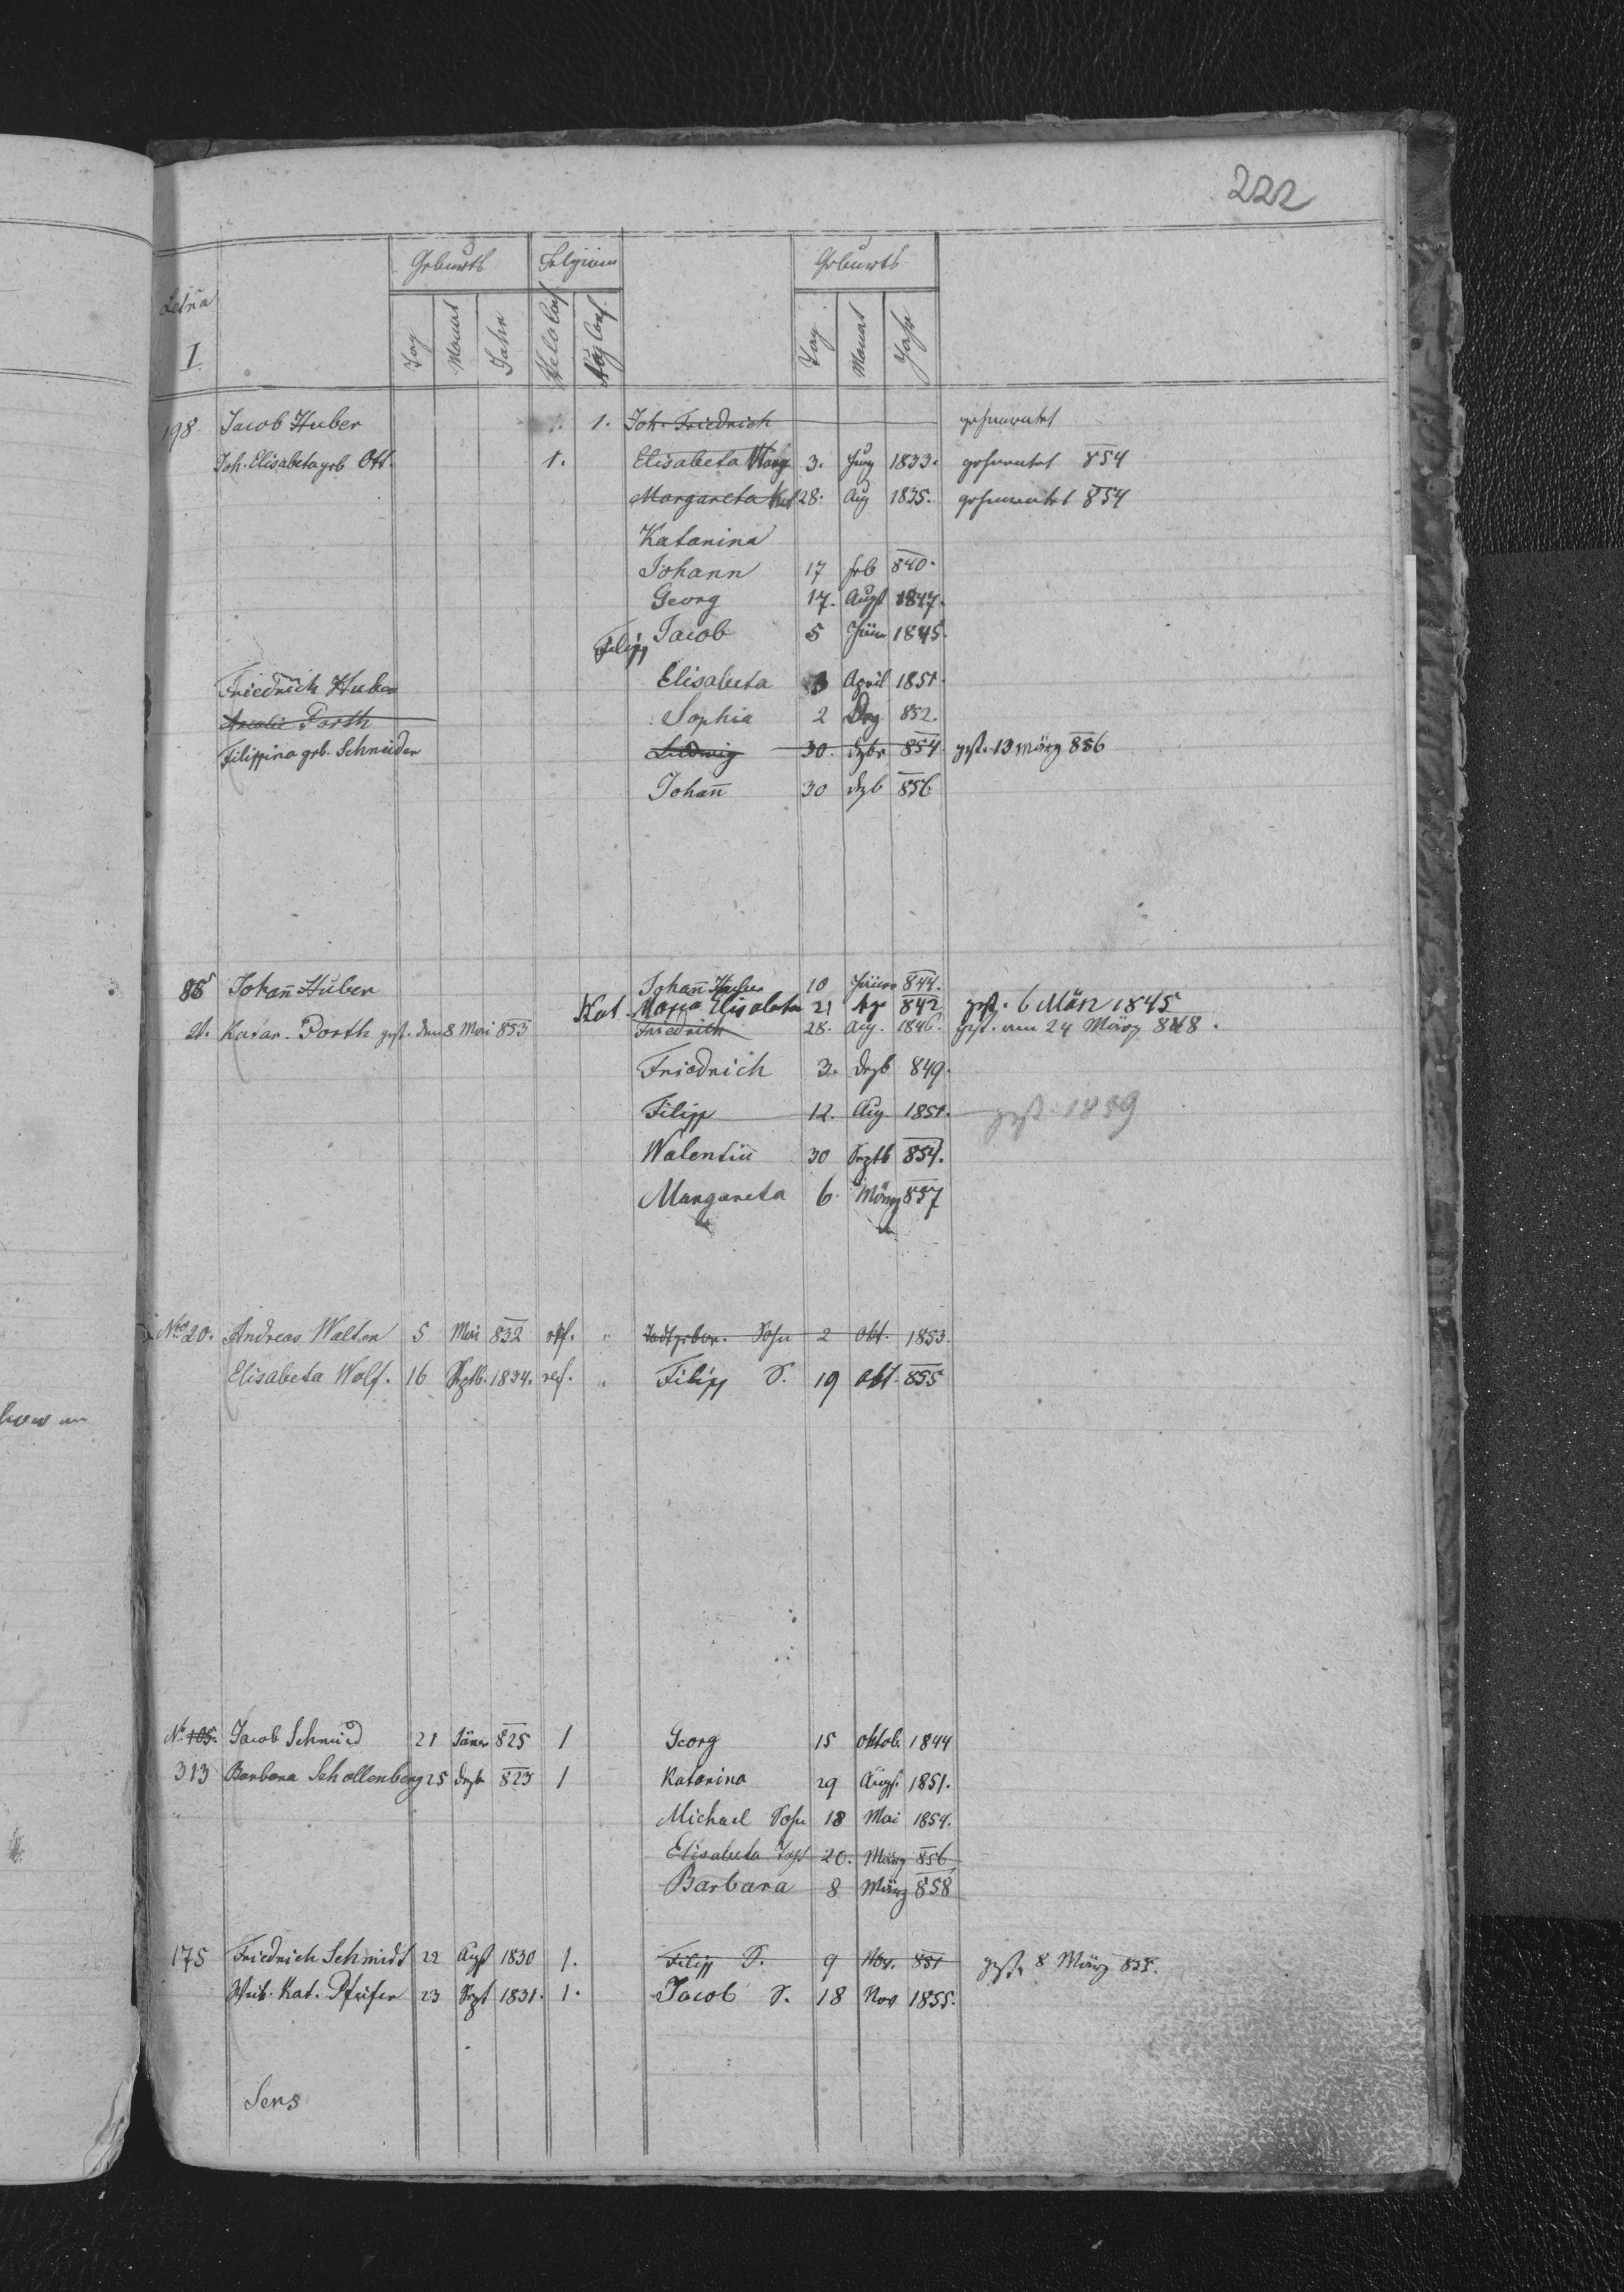 222
Geburts Geburts
Letña
I
Tag Monat Jahr Helv Conf Aug Conf. Tag Monat Jahr
198. Jacob Huber 1. 1. Joh. Friedrich geheuratet
Joh. Elisabeta geb Ott. 1. Elisabeta Marg 3. 1833. geheuratet 854
Margareta 28. Aug 1835. geheuratet 854
Katarina
Johann 17 feb 840.
Georg 17. Augst 1847.
Filipp Jacob 5 Jän 1845.
Friedrich Huber Elisabeta 3 April 1851.
Porth Sophia 2 852.
Filippina geb. Schneider Ludwig 30. dzbr 854 gest. 13 März 856
Johañ 30 dzb 856
85 Johañ Huber Johañ Huber 10 Jäner 844.
Kat. Maria Elisabeta 21 842 gest. 6 März 1845
21. Katar. Porth gest. den 8 Mai 853 Friedrich 28. Aug. 1846. gest. am 24 März 848.
Friedrich 3. dezb 849.
Filipp 12. Aug. 1851. gest. 1859
Walentin 30 Septb 854.
Margareta 6. März 857
Nro 20. Andreas Walter 5 Mai 832 ref. " Todtgebor. Sohn 2 okt. 1853.
Elisabeta Wolf. 16 Septb. 1834. ref. " Filipp S. 19 okt. 855
No 105. Jacob Schmied 21 Jäner 825 1 Georg 15 oktob. 1844
313 Barbara Schollenberg 25 dezb 823 1 Katarina 29 Augst. 1851.
Michael Sohn 18 Mai 1854.
Elisabeta 20. März 856
Barbara 8 März 858
175 Friedrich Schmidt 22 Augst 1830 1. Filipp S. 9 Nov. 851 gest. 8 März 855.
Weib. Kat. Pfeifer 23 Sept 1831. 1. Jacob S. 18 Nov 1855.
Sens